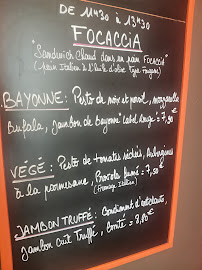 DE 11H30 à 13H30
FOCACCiA
"Sandwich Chaud dans un pain Focaccia"
(Pain Italien à l'huile d'olive type Fougasse)
BAYONNE: Pesto de noix et persil, mozzarella
Bufala, Jambon de Bayonne Label Rouge = 7,90€
VÉGÉ: Pesto de tomates séchées, Aubergines
à la parmesane, Provola fumé = 7,50€
(Fromage Italien)
JAMBON TRUFFÉ: Condiment d'artichauts,
Jambon cuit Truffé, Comté = 8,80€